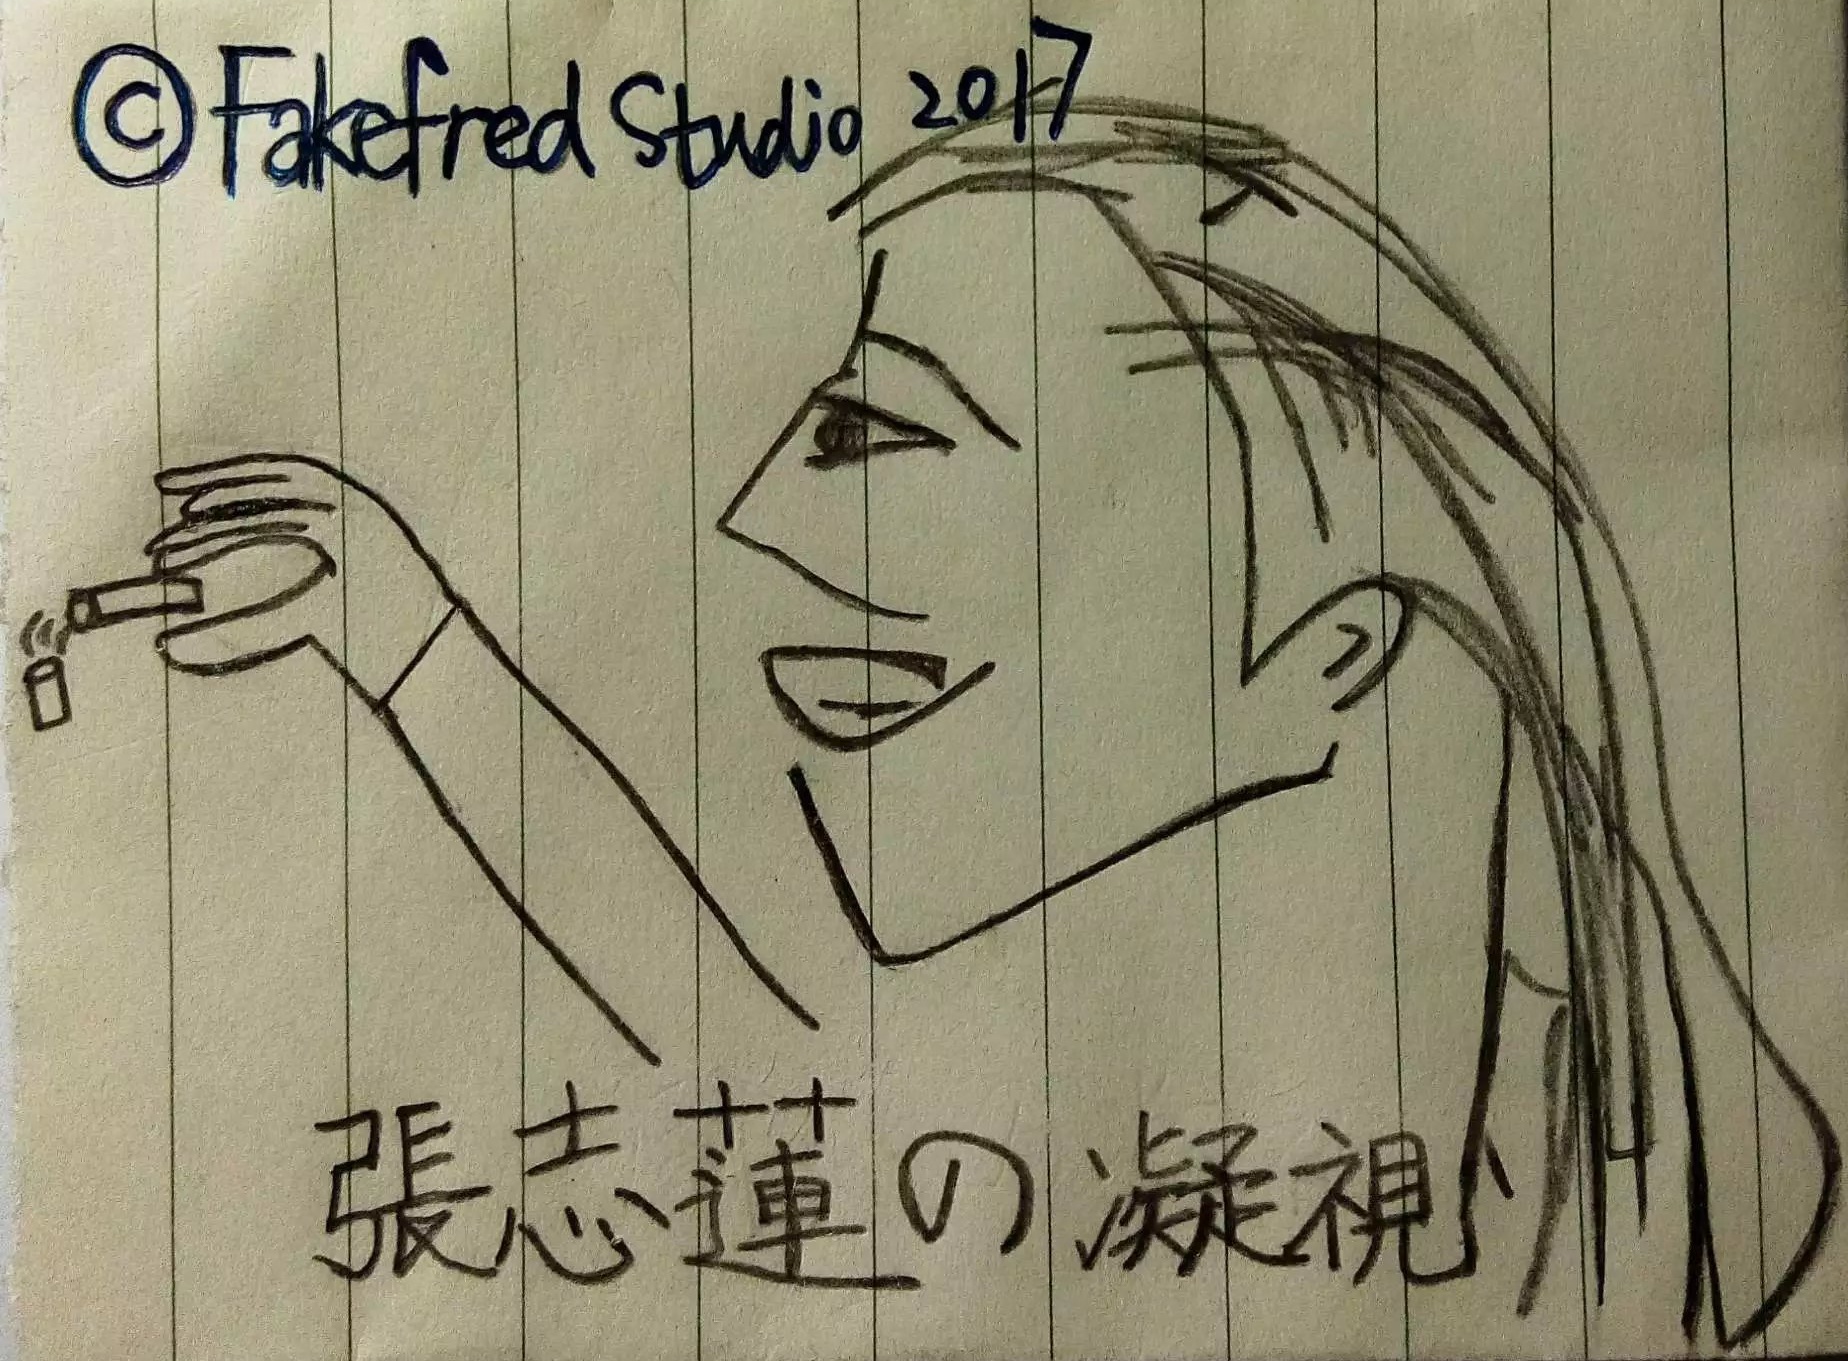 ©Fakefred Studio 2017
張志蓮の凝視